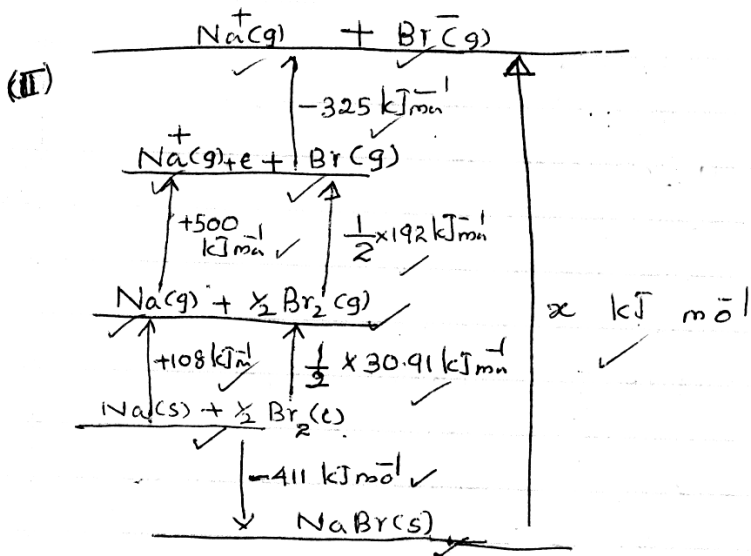 Na⁺(g) + Br⁻(g)
(II)
-325 kJ mol⁻¹
Na⁺(g) + e + Br(g)
+500 kJ mol⁻¹
½ × 192 kJ mol⁻¹
Na(g) + ½ Br₂(g)
x kJ mol⁻¹
+108 kJ mol⁻¹
½ × 30.91 kJ mol⁻¹
Na(s) + ½ Br₂(l)
-411 kJ mol⁻¹
NaBr(s)